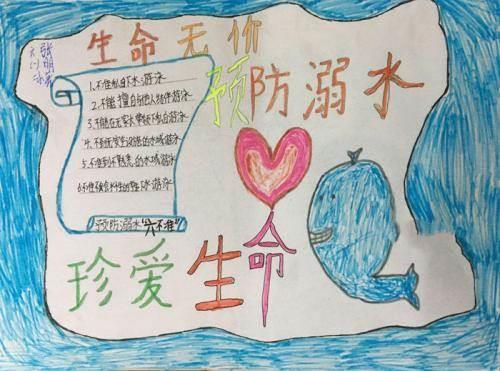 生命无价
预防溺水
1.不准私自下水游泳
2.不能擅自与他人结伴游泳
3.不能在无家长带领下私自游泳
4.不到无安全设施的水域游泳
5.不准到不熟悉的水域游泳
6不准 会水性的 水游泳
预防溺水"六不准"
珍爱生命